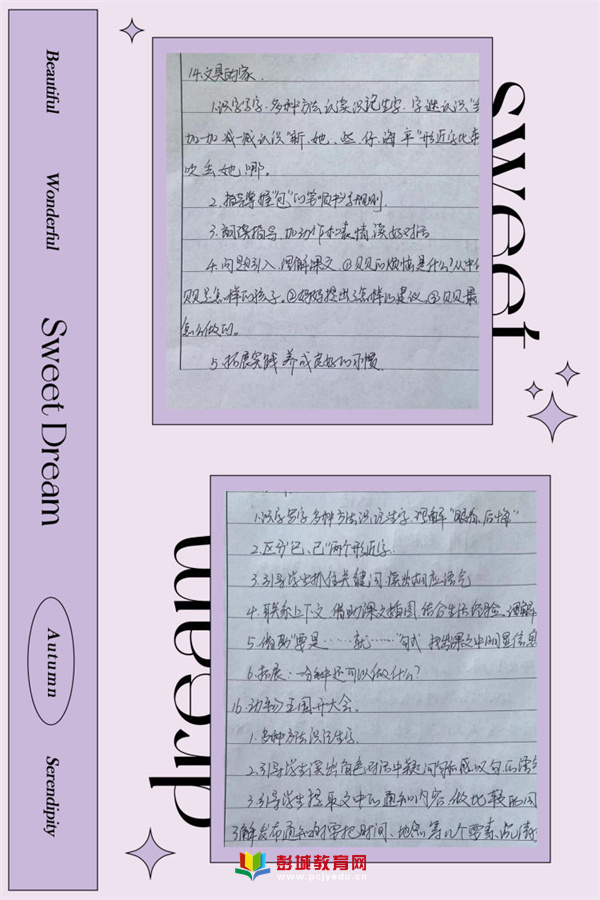 Beautiful
Wonderful
Sweet Dream
Autumn
Serendipity
sweet
dream
14.文具的家.
1.识字写字.多种方法认读识记生字.字谜认识"
加一加减一减认识"新、她、些、仔、海、平"形近字比
吹去她哪。
2.指导掌握"包"的笔顺书写规则.
3.朗读指导,加动作和表情读好对话
4.问题引入,理解课文.①贝贝的烦恼是什么?从中
贝贝是怎样的孩子.②妈妈提出了怎样的建议.③贝贝最
怎么做的.
5.拓展实践 养成良好的习惯.
1.识字写字多种方法识记生字.理解"后悔"
2.区分"已、己"两个形近字.
3.引导学生抓住关键词,读出相应语气
4.联系上下文,借助课文插图,结合生活经验,理解
5.借助"要是……就……"句式 找出课文中明显信息
6.拓展:一分钟还可以做什么?
16.动物王国开大会.
1.多种方法识记生字.
2.引导学生读出角色对话中疑问句和感叹句的语气
3.引导学生提取文中的通知内容,做比较
了解发布通知时需把时间、地点等几个要素说清
彭城教育网
www.pcjyedu.cn